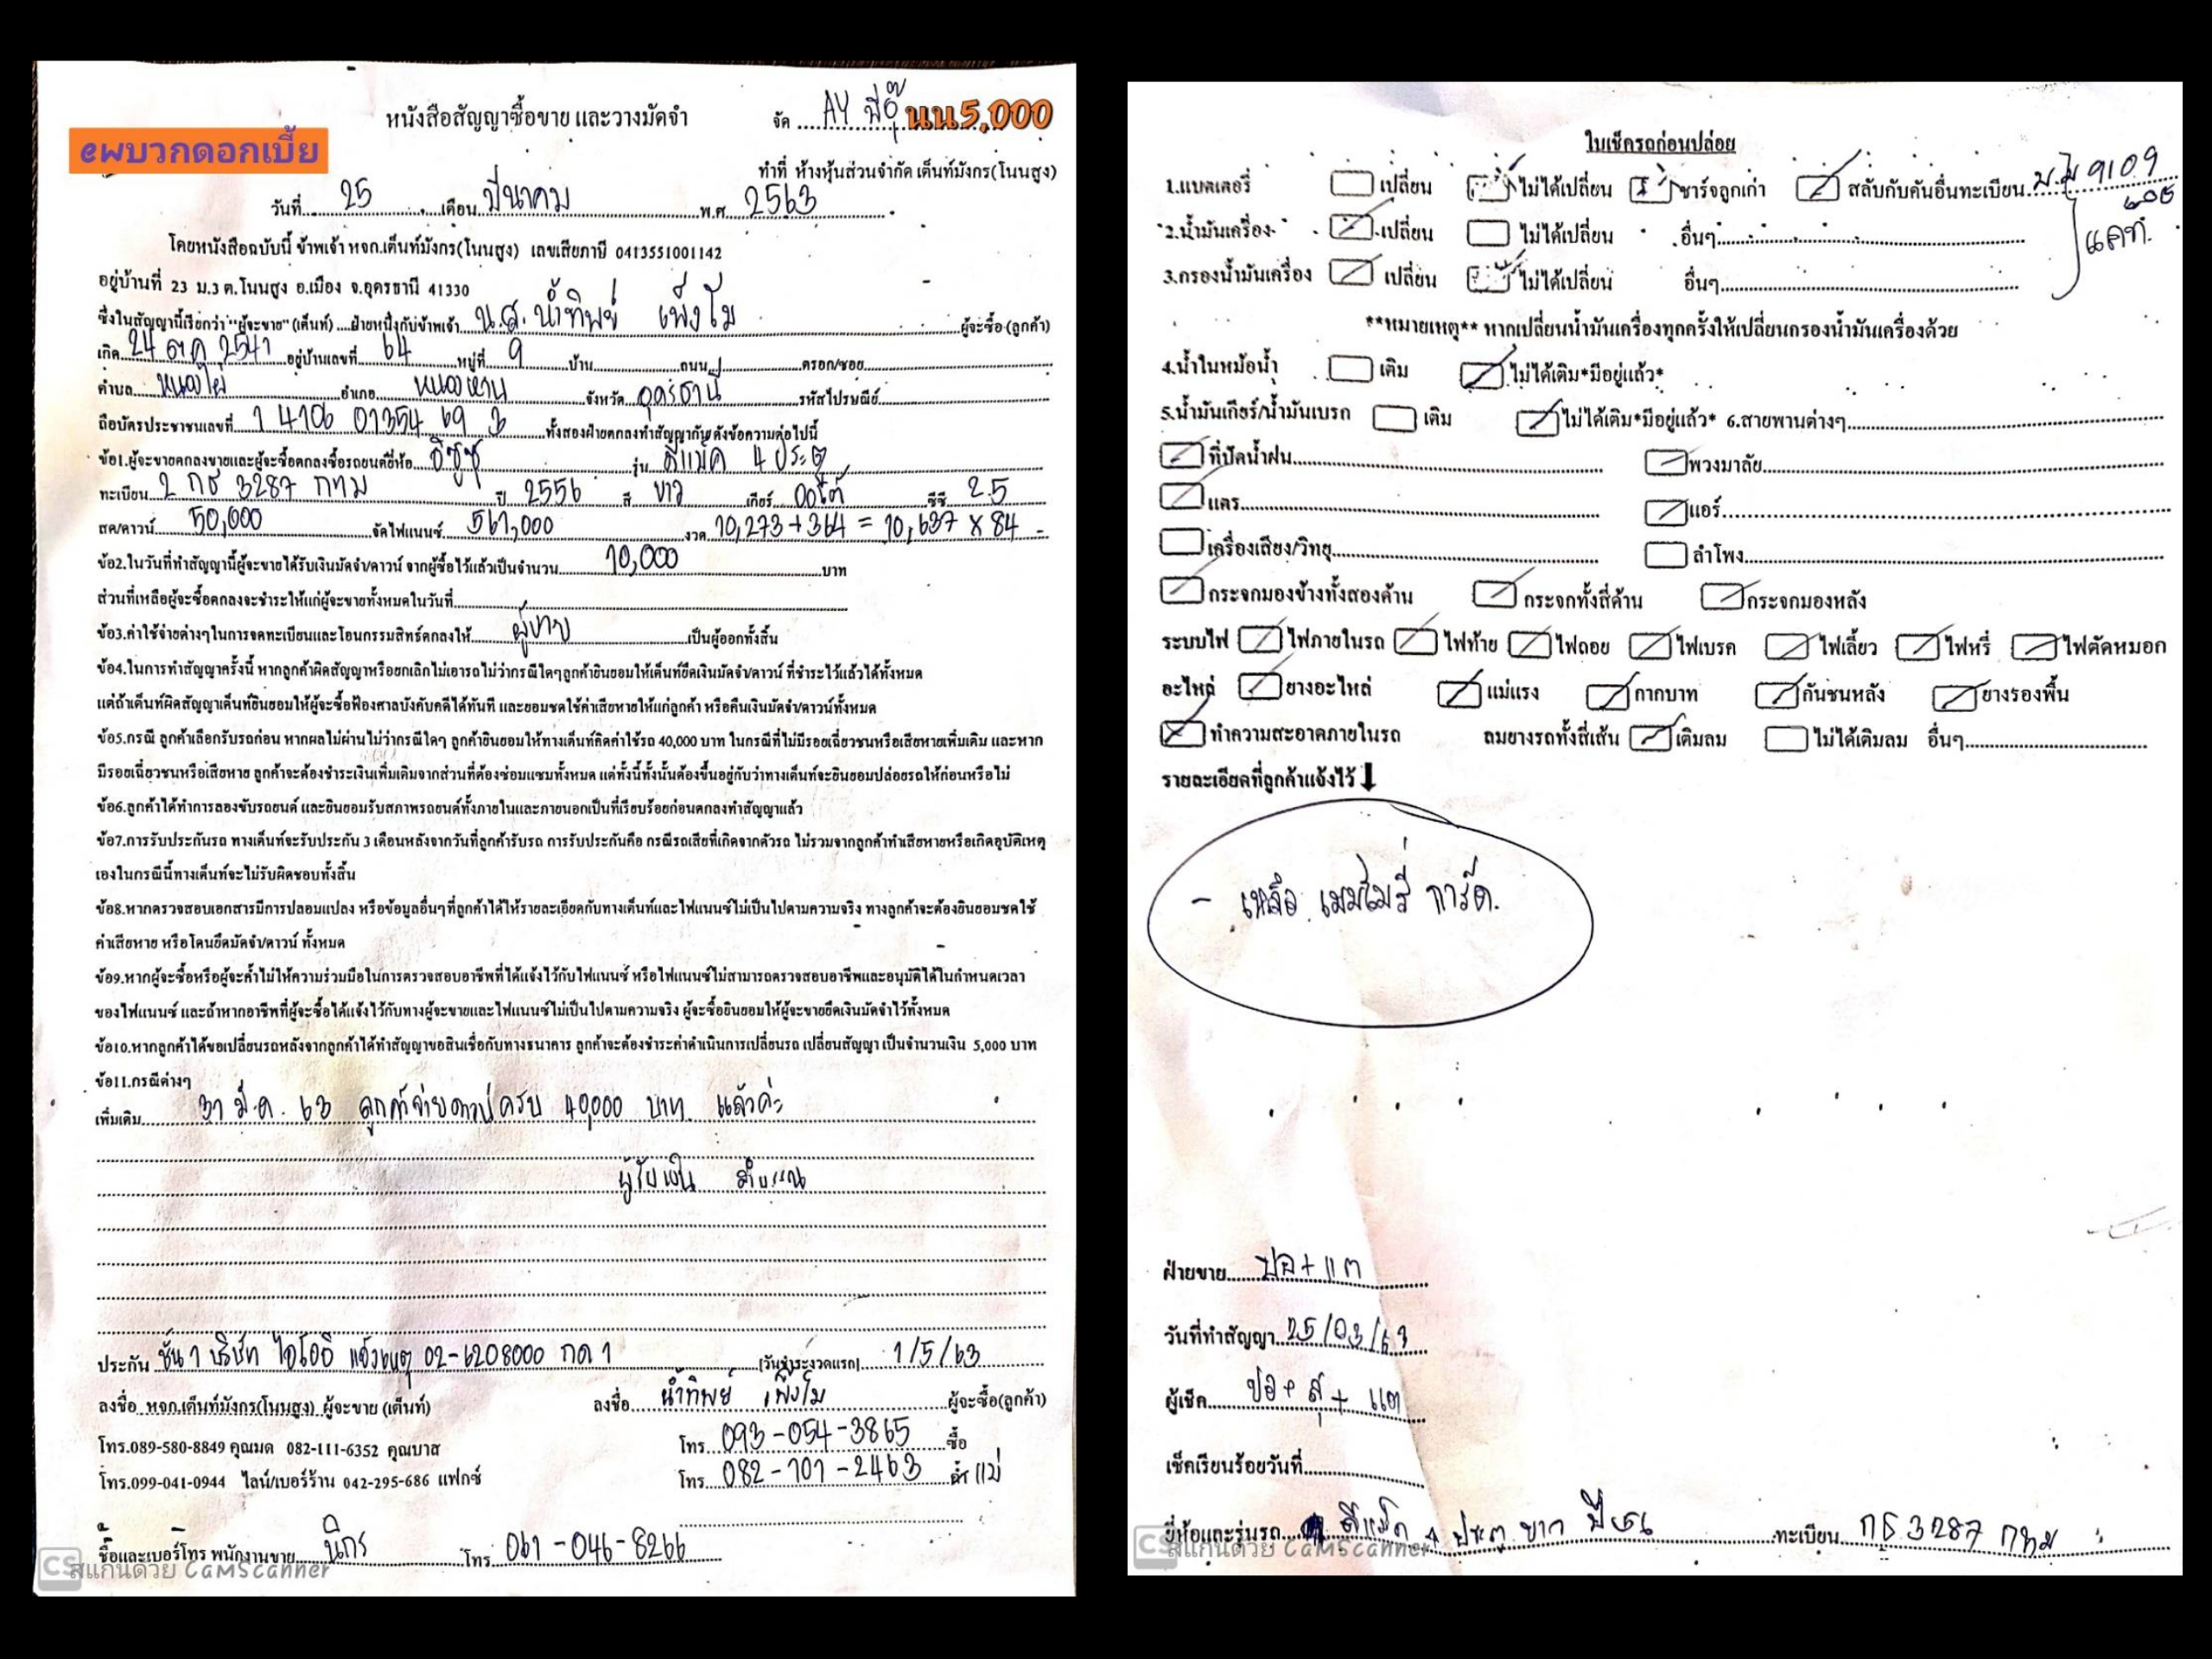 หนังสือสัญญาซื้อขาย และวางมัดจำ
จัด AY พี่อุ๊ นน5,000
ewบวกดอกเบี้ย
ทำที่ ห้างหุ้นส่วนจำกัด เต็นท์มังกร(โนนสูง)
วันที่ 25 เดือน มีนาคม พ.ศ 2563
โดยหนังสือฉบับนี้ ข้าพเจ้า หจก.เต็นท์มังกร(โนนสูง) เลขเสียภาษี 0413551001142
อยู่บ้านที่ 23 ม.3 ต.โนนสูง อ.เมือง จ.อุดรธานี 41330
ซึ่งในสัญญานี้เรียกว่า"ผู้จะขาย"(เต็นท์)....ฝ่ายหนึ่งกับข้าพเจ้า น.ส. น้ำทิพย์ เพ็งโม ผู้จะซื้อ(ลูกค้า)
เกิด 24 ตค 2541 อยู่บ้านเลขที่ 64 หมู่ที่ 9 บ้าน ถนน ตรอก/ซอย
ตำบล หนองไผ่ อำเภอ หนองหาน จังหวัด อุดรธานี รหัสไปรษณีย์
ถือบัตรประชาชนเลขที่ 1 4106 01354 69 3 ทั้งสองฝ่ายตกลงทำสัญญากันดังข้อความต่อไปนี้
ข้อ1.ผู้จะขายตกลงขายและผู้จะซื้อตกลงซื้อรถยนต์ยี่ห้อ อีซูซุ รุ่น ดีแม็ค 4 ประตู
ทะเบียน 2 กธ 3287 กทม ปี 2556 สี ขาว เกียร์ ออโต้ ซีซี 2.5
สด/ดาวน์ 50,000 จัดไฟแนนซ์ 561,000 งวด 10,273+364 = 10,637 x 84
ข้อ2.ในวันที่ทำสัญญานี้ผู้จะขายได้รับเงินมัดจำ/ดาวน์ จากผู้ซื้อไว้แล้วเป็นจำนวน 10,000 บาท
ส่วนที่เหลือผู้จะซื้อตกลงจะชำระให้แก่ผู้จะขายทั้งหมดในวันที่
ข้อ3.ค่าใช้จ่ายต่างๆในการจดทะเบียนและโอนกรรมสิทธ์ตกลงให้ ผู้ขาย เป็นผู้ออกทั้งสิ้น
ข้อ4.ในการทำสัญญาครั้งนี้ หากลูกค้าผิดสัญญาหรือยกเลิกไม่เอารถไม่ว่ากรณีใดๆลูกค้ายินยอมให้เต็นท์ยึดเงินมัดจำ/ดาวน์ ที่ชำระไว้แล้วได้ทั้งหมด
แต่ถ้าเต็นท์ผิดสัญญาเต็นท์ยินยอมให้ผู้จะซื้อฟ้องศาลบังคับคดีได้ทันที และยอมชดใช้ค่าเสียหายให้แก่ลูกค้า หรือคืนเงินมัดจำ/ดาวน์ทั้งหมด
ข้อ5.กรณี ลูกค้าเลือกรับรถก่อน หากผลไม่ผ่านไม่ว่ากรณีใดๆ ลูกค้ายินยอมให้ทางเต็นท์คิดค่าใช้รถ 40,000 บาท ในกรณีที่ไม่มีรอยเฉี่ยวชนหรือเสียหายเพิ่มเติม และหาก
มีรอยเฉี่ยวชนหรือเสียหาย ลูกค้าจะต้องชำระเงินเพิ่มเติมจากส่วนที่ต้องซ่อมแซมทั้งหมด แต่ทั้งนี้ทั้งนั้นต้องขึ้นอยู่กับว่าทางเต็นท์จะยินยอมปล่อยรถให้ก่อนหรือไม่
ข้อ6.ลูกค้าได้ทำการลองขับรถยนต์ และยินยอมรับสภาพรถยนต์ทั้งภายในและภายนอกเป็นที่เรียบร้อยก่อนตกลงทำสัญญาแล้ว
ข้อ7.การรับประกันรถ ทางเต็นท์จะรับประกัน 3 เดือนหลังจากวันที่ลูกค้ารับรถ การรับประกันคือ กรณีรถเสียที่เกิดจากตัวรถ ไม่รวมจากลูกค้าทำเสียหายหรือเกิดอุบัติเหตุ
เองในกรณีนี้ทางเต็นท์จะไม่รับผิดชอบทั้งสิ้น
ข้อ8.หากตรวจสอบเอกสารมีการปลอมแปลง หรือข้อมูลอื่นๆที่ลูกค้าได้ให้รายละเอียดกับทางเต็นท์และไฟแนนซ์ไม่เป็นไปตามความจริง ทางลูกค้าจะต้องยินยอมชดใช้
ค่าเสียหาย หรือโดนยึดมัดจำ/ดาวน์ ทั้งหมด
ข้อ9.หากผู้จะซื้อหรือผู้จะค้ำไม่ให้ความร่วมมือในการตรวจสอบอาชีพที่ได้แจ้งไว้กับไฟแนนซ์ หรือไฟแนนซ์ไม่สามารถตรวจสอบอาชีพและอนุมัติได้ในกำหนดเวลา
ของไฟแนนซ์ และถ้าหากอาชีพที่ผู้จะซื้อได้แจ้งไว้กับทางผู้จะขายและไฟแนนซ์ไม่เป็นไปตามความจริง ผู้จะซื้อยินยอมให้ผู้จะขายยึดเงินมัดจำไว้ทั้งหมด
ข้อ10.หากลูกค้าได้ขอเปลี่ยนรถหลังจากลูกค้าได้ทำสัญญาขอสินเชื่อกับทางธนาคาร ลูกค้าจะต้องชำระค่าดำเนินการเปลี่ยนรถ เปลี่ยนสัญญา เป็นจำนวนเงิน 5,000 บาท
ข้อ11.กรณีต่างๆ
เพิ่มเติม 31 มี.ค. 63 ลูกค้าจ่ายดาวน์ครบ 40,000 บาท แล้วค่ะ
ผู้รับเงิน
ประกัน ชั้น 1 บริษัท ไอโออิ แจ้งเหตุ 02-6208000 กด 1 (วันชำระงวดแรก) 1/5/63
ลงชื่อ หจก.เต็นท์มังกร(โนนสูง) ผู้จะขาย (เต็นท์) ลงชื่อ น้ำทิพย์ เพ็งโม ผู้จะซื้อ(ลูกค้า)
โทร.089-580-8849 คุณมด 082-111-6352 คุณบาส โทร 093-054-3865 ซื้อ
โทร.099-041-0944 ไลน์/เบอร์ร้าน 042-295-686 แฟกซ์ โทร 082-101-2463 ค้ำ แม่
ชื่อและเบอร์โทร พนักงานขาย นิกร โทร 061-046-8266
CS สแกนด้วย CamScanner
ใบเช็ครถก่อนปล่อย
1.แบตเตอรี่ เปลี่ยน ไม่ได้เปลี่ยน ชาร์จลูกเก่า สลับกับคันอื่นทะเบียน 9109
แคท.
2.น้ำมันเครื่อง เปลี่ยน ไม่ได้เปลี่ยน อื่นๆ
3.กรองน้ำมันเครื่อง เปลี่ยน ไม่ได้เปลี่ยน อื่นๆ
**หมายเหตุ** หากเปลี่ยนน้ำมันเครื่องทุกครั้งให้เปลี่ยนกรองน้ำมันเครื่องด้วย
4.น้ำในหม้อน้ำ เติม ไม่ได้เติม*มีอยู่แล้ว*
5.น้ำมันเกียร์/น้ำมันเบรก เติม ไม่ได้เติม*มีอยู่แล้ว* 6.สายพานต่างๆ
ที่ปัดน้ำฝน พวงมาลัย
แตร แอร์
เครื่องเสียง/วิทยุ ลำโพง
กระจกมองข้างทั้งสองด้าน กระจกทั้งสี่ด้าน กระจกมองหลัง
ระบบไฟ ไฟภายในรถ ไฟท้าย ไฟถอย ไฟเบรค ไฟเลี้ยว ไฟหรี่ ไฟตัดหมอก
อะไหล่ ยางอะไหล่ แม่แรง กากบาท กันชนหลัง ยางรองพื้น
ทำความสะอาดภายในรถ ลมยางรถทั้งสี่เส้น เติมลม ไม่ได้เติมลม อื่นๆ
รายละเอียดที่ลูกค้าแจ้งไว้
- เหลือ เมมโมรี่ การ์ด.
ฝ่ายขาย ปอ + แต
วันที่ทำสัญญา 25/03/63
ผู้เช็ค ปอ + สุ + แต
เช็คเรียบร้อยวันที่
ยี่ห้อและรุ่นรถ ดีแม็ค 4 ประตู ขาว ปี 56 ทะเบียน กธ 3287 กทม
CS สแกนด้วย CamScanner